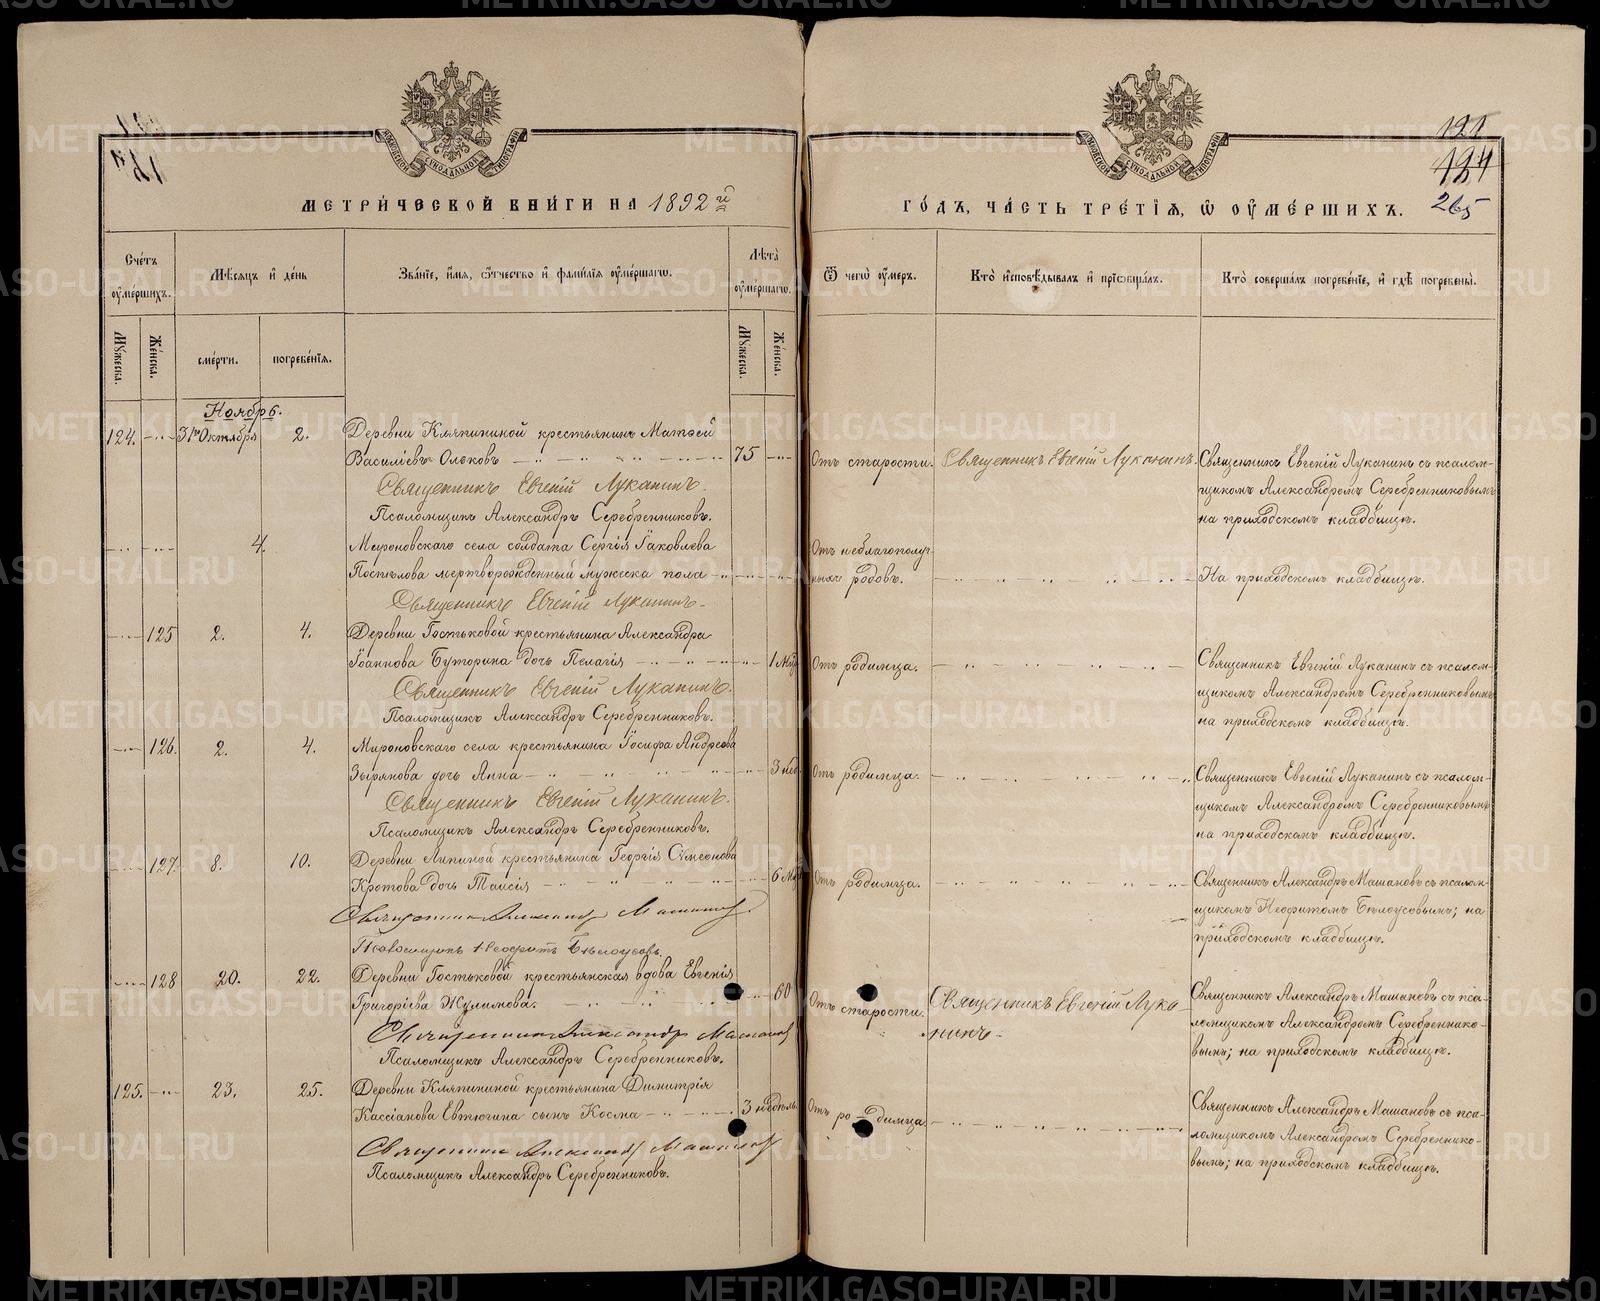 121
124
265
МЕТРИЧЕСКОЙ КНИГИ НА 1892 й
ГОДЪ, ЧАСТЬ ТРЕТІЯ, Ѡ ОУМЕРШИХЪ.
Счетъ оумершихъ.
Мѣсяцъ и день
Званіе, имя, ѿчество и фамилія оумершагѡ.
Лѣта оумершагѡ.
Ѿ чегѡ оумеръ.
Кто исповѣдывалъ и пріобщалъ.
Кто совершалъ погребеніе, и гдѣ погребены.
Мужеска.
Женска.
смерти.
погребенія.
Мужеска.
Женска.
Ноябрь.
124. 31го Октября 2. Деревни Кляпининой крестьянинъ Матѳей
Василіевъ Ольковъ 75 Отъ старости. Священникъ Евгеній Луканинъ. Священникъ Евгеній Луканинъ съ псалом-
Священникъ Евгеній Луканинъ.
щикомъ Александромъ Серебренниковымъ
Псаломщикъ Александръ Серебренниковъ.
на приходскомъ кладбищѣ.
4. Мироновскаго села солдата Сергія Іаковлева
Отъ неблагополуч-
Поспѣлова мертворожденный мужеска пола
ныхъ родовъ. На приходскомъ кладбищѣ.
Священникъ Евгеній Луканинъ.
125 2. 4. Деревни Гостьковой крестьянина Александра
Іоаннова Буторина дочь Пелагія 1 Отъ родимца. Священникъ Евгеній Луканинъ съ псалом-
Священникъ Евгеній Луканинъ.
щикомъ Александромъ Серебренниковымъ
Псаломщикъ Александръ Серебренниковъ.
на приходскомъ кладбищѣ.
126. 2. 4. Мироновскаго села крестьянина Іосифа Андреева
Зырянова дочь Анна 3 нед. Отъ родимца. Священникъ Евгеній Луканинъ съ псалом-
Священникъ Евгеній Луканинъ.
щикомъ Александромъ Серебренниковымъ
Псаломщикъ Александръ Серебренниковъ.
на приходскомъ кладбищѣ.
127. 8. 10. Деревни Липиной крестьянина Георгія Сѵмеонова
Кротова дочь Таисія 6 Отъ родимца. Священникъ Александръ Машановъ съ псалом-
Священникъ Александръ Машановъ
щикомъ Неофитомъ Бѣлоусовымъ; на
Псаломщикъ Неофитъ Бѣлоусовъ.
приходскомъ кладбищѣ.
128 20. 22. Деревни Гостьковой крестьянская вдова Евгенія
Григоріева Жулимова. 60 Отъ старости. Священникъ Евгеній Лука-
нинъ.
Священникъ Александръ Машановъ съ пса-
Священникъ Александръ Машановъ
ломщикомъ Александромъ Серебреннико-
Псаломщикъ Александръ Серебренниковъ.
вымъ; на приходскомъ кладбищѣ.
125. 23. 25. Деревни Кляпининой крестьянина Димитрія
Кассіанова Евтюгина сынъ Косма 3 недѣль. Отъ родимца. Священникъ Александръ Машановъ съ пса-
Священникъ Александръ Машановъ
ломщикомъ Александромъ Серебреннико-
Псаломщикъ Александръ Серебренниковъ.
вымъ; на приходскомъ кладбищѣ.
METRIKI.GASO-URAL.RU